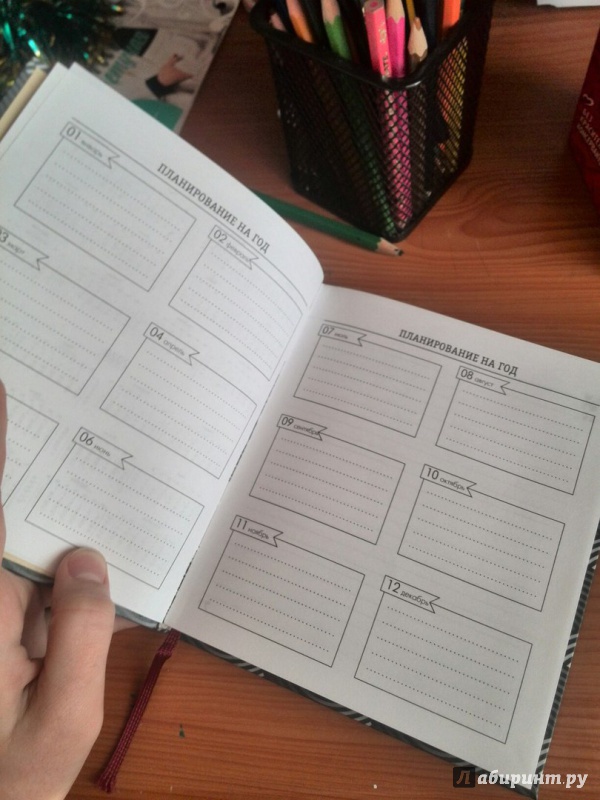 ПЛАНИРОВАНИЕ НА ГОД
01 январь
02 февраль
03 март
04 апрель
06 июнь
ПЛАНИРОВАНИЕ НА ГОД
07 июль
08 август
09 сентябрь
10 октябрь
11 ноябрь
12 декабрь
Лабиринт.ру